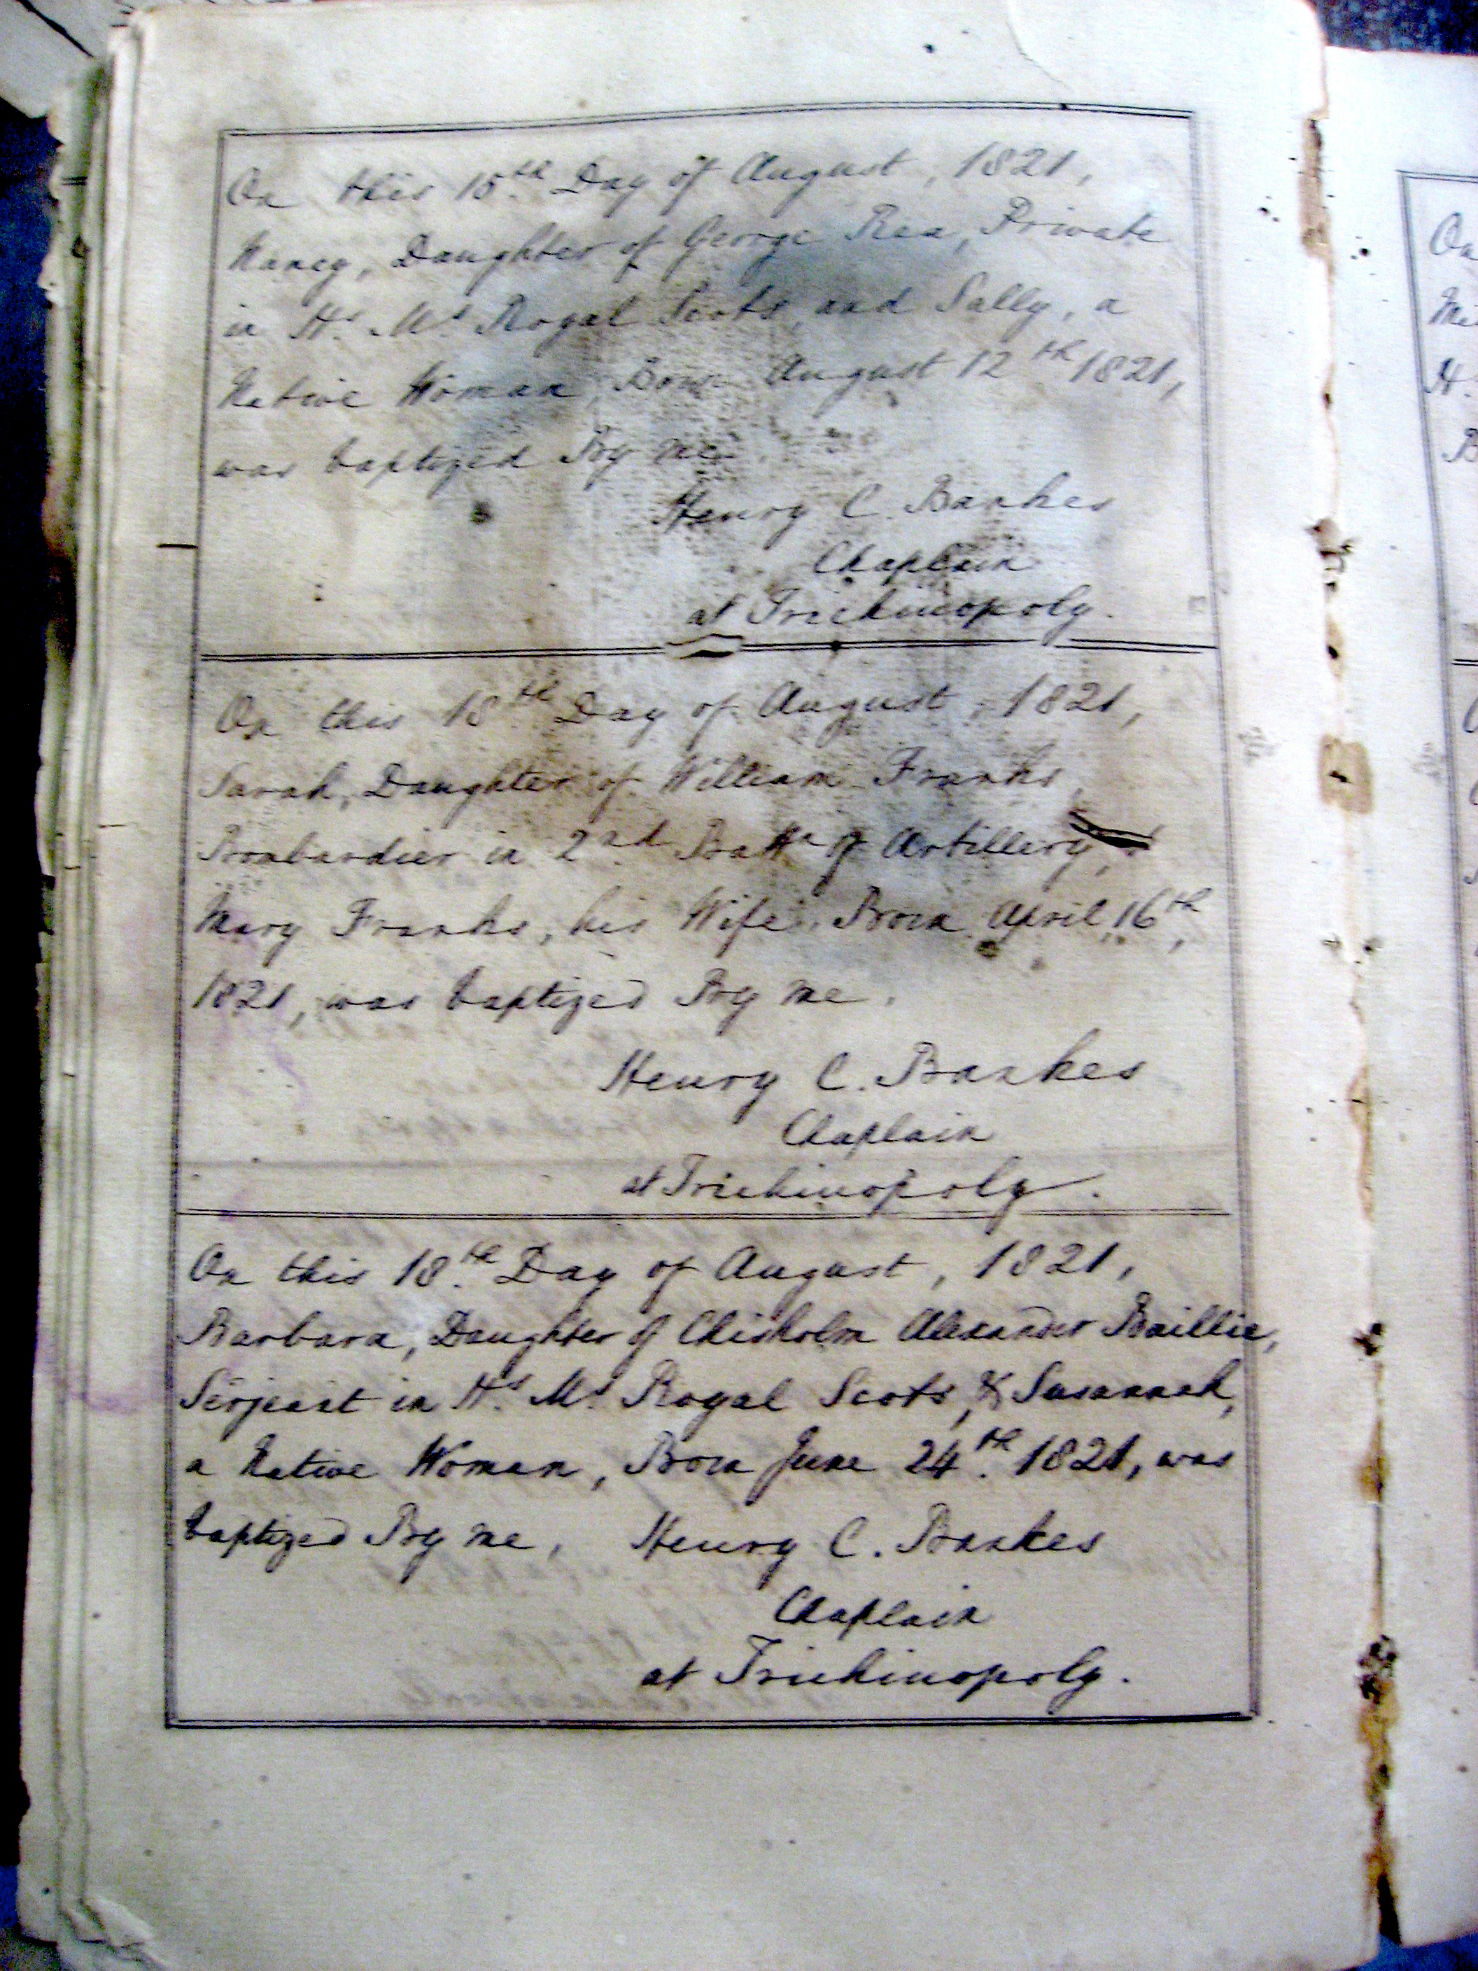 On this 15th Day of August, 1821,
Nancy, Daughter of George Rea, Private
in Hs. Ms. Royal Scots, and Sally, a
Native Woman, Born August 12th 1821,
was baptized By me
Henry C. Bankes
Chaplain
at Trichinopoly.
On this 18th Day of August, 1821,
Sarah, Daughter of William Franks
Bombardier in 2nd Battn of Artillery,
Mary Franks, his Wife, Born April 16th,
1821, was baptized By me.
Henry C. Bankes
Chaplain
at Trichinopoly.
On this 18th Day of August, 1821,
Barbara, Daughter of Chisholm Alexander Baillie,
Serjeant in Hs. Ms. Royal Scots, & Susannah,
a Native Woman, Born June 24th. 1821, was
baptized By me, Henry C. Bankes
Chaplain
at Trichinopoly.
On
H.